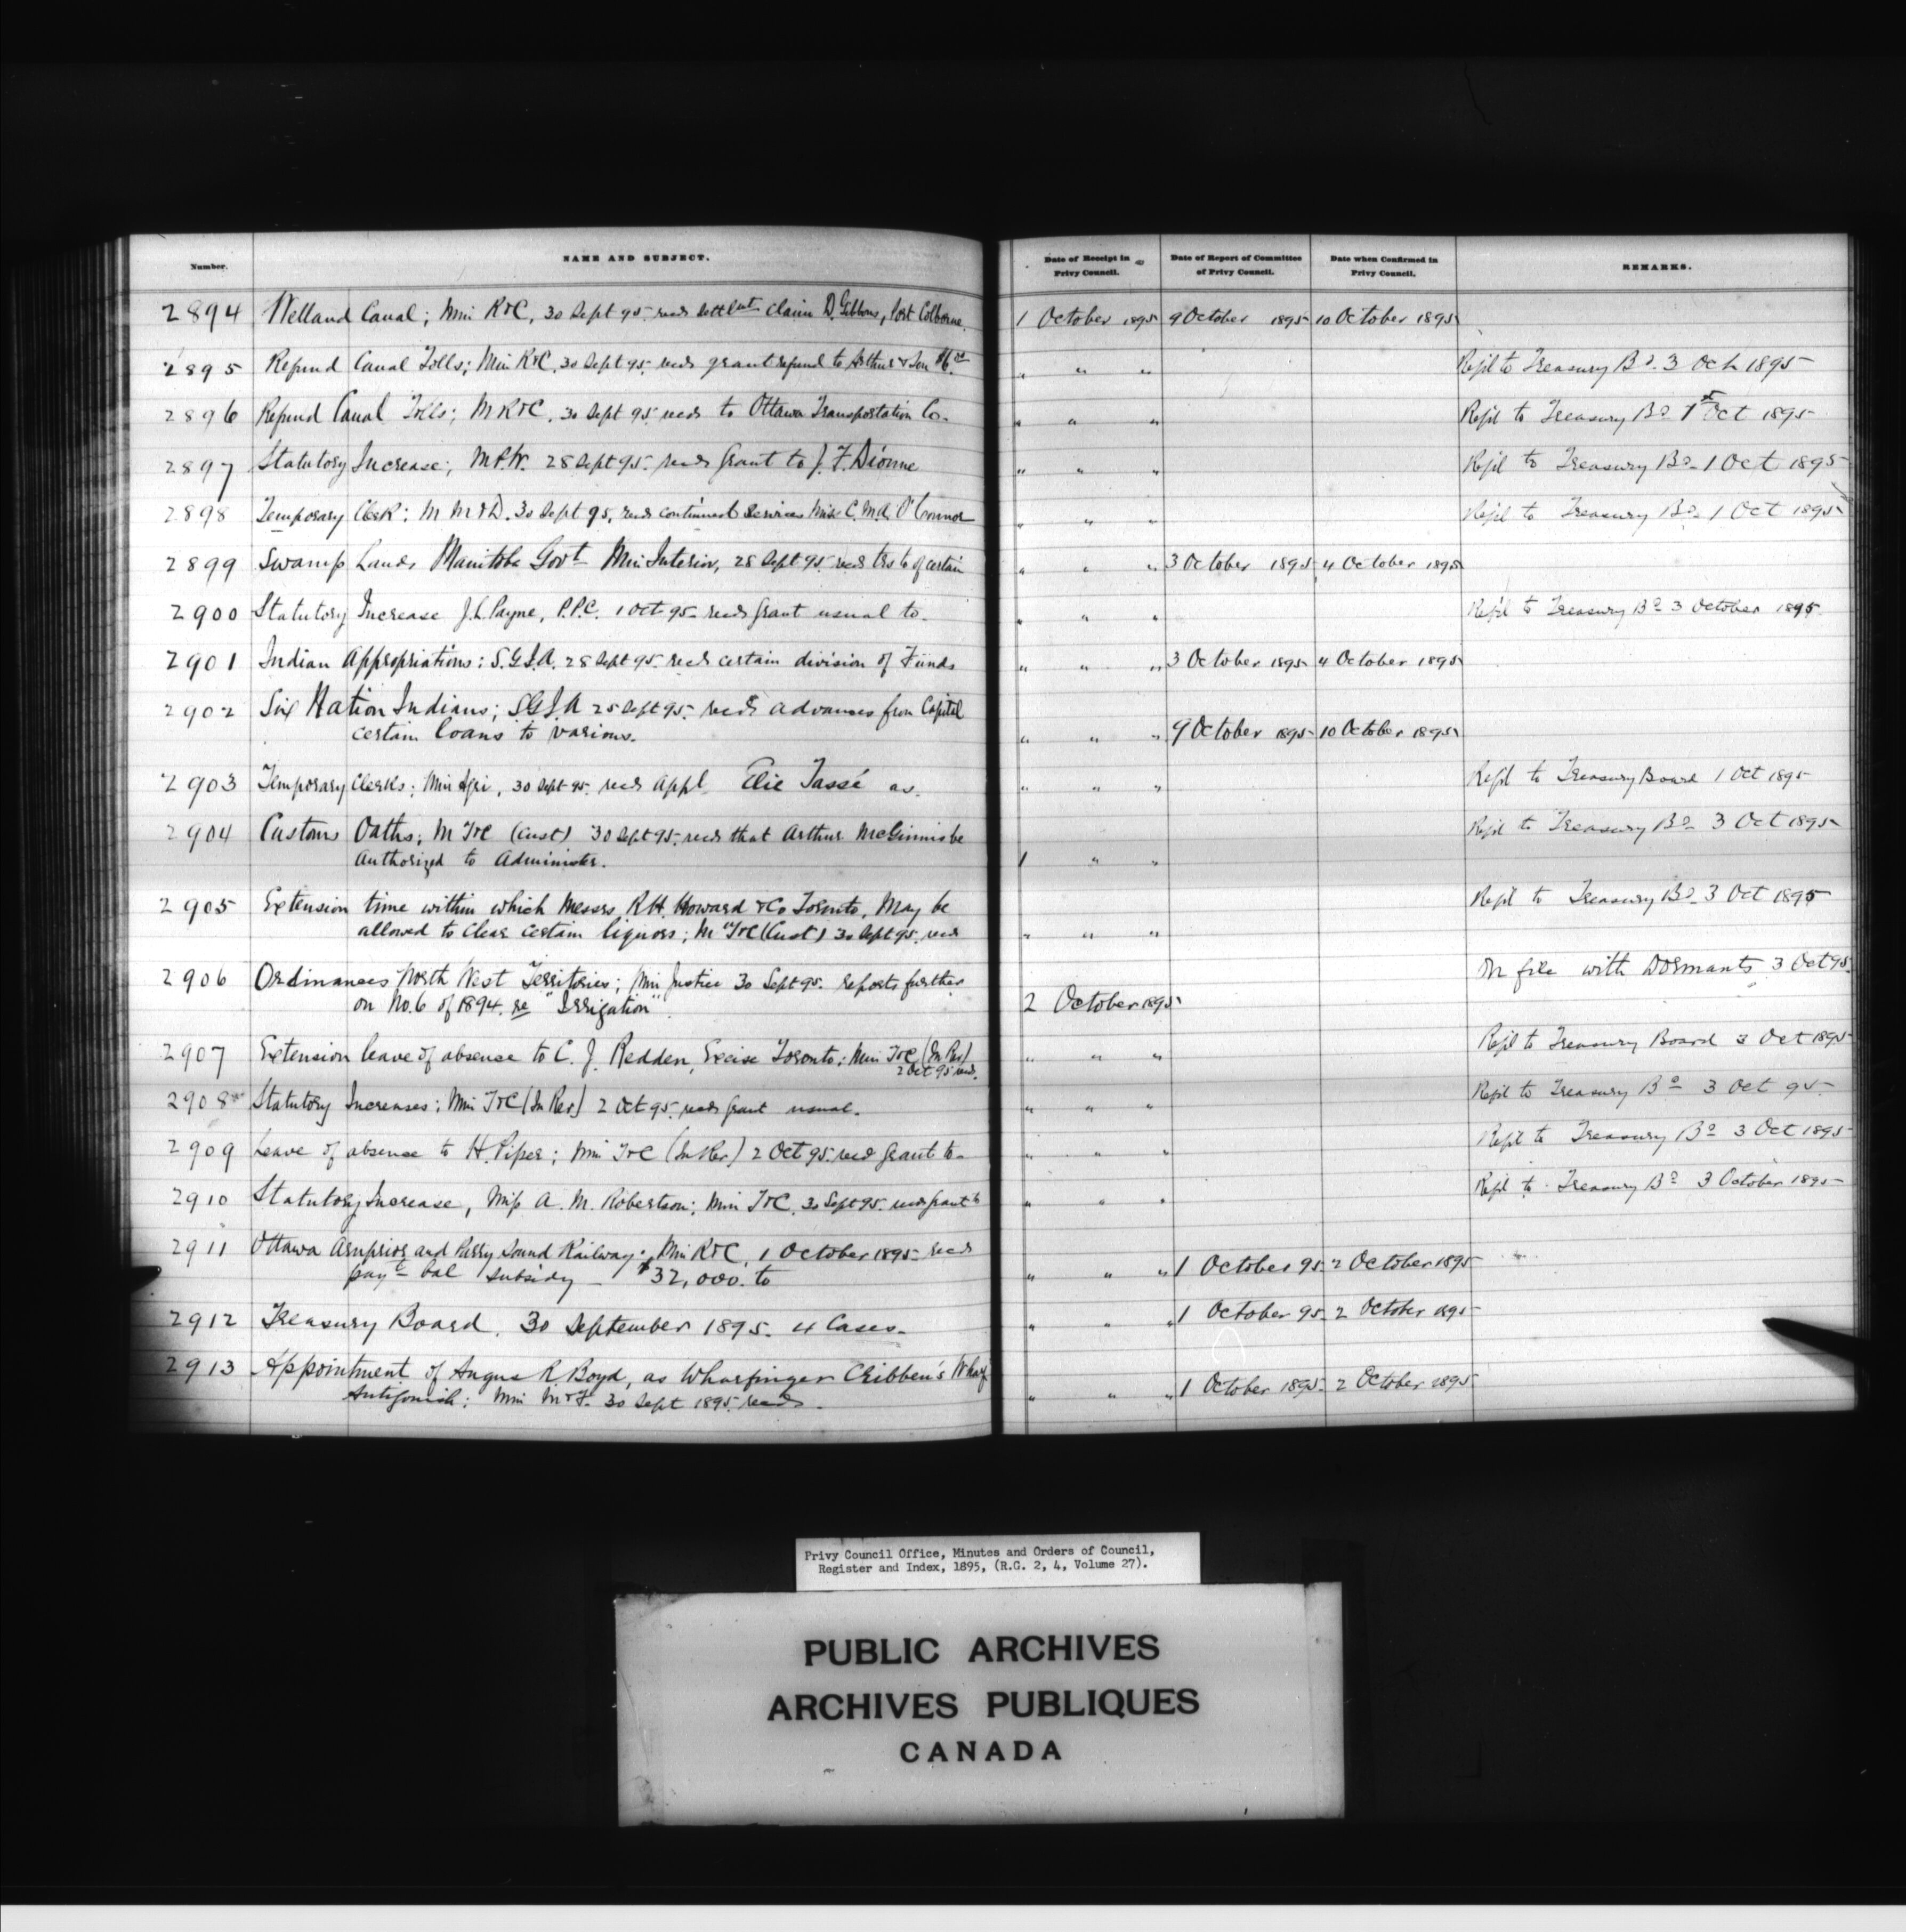 Number. NAME AND SUBJECT. Date of Receipt in Privy Council. Date of Report of Committee of Privy Council. Date when Confirmed in Privy Council. REMARKS.
2894 Welland Canal; Min R&C, 30 Sept 95 recds settlmt claim D. Gibbons, Port Colborne. 1 October 1895 9 October 1895 10 October 1895
2895 Refund Canal Tolls; Min R&C, 30 Sept 95. recds grant refund to & Son " " " Refd to Treasury Bd. 3 Oct 1895
2896 Refund Canal Tolls; M R&C, 30 Sept 95, recds to Ottawa Transportation Co. " " " Refd to Treasury Bd 1st Oct 1895
2897 Statutory Increase; M.P.W. 28 Sept 95. recds grant to J. F. Dionne " " " Refd to Treasury Bd 1 Oct 1895
2898 Temporary Clerk; M M&D. 30 Sept 95, recds continued services Miss C. M. A. O'Connor " " " Refd to Treasury Bd 1 Oct 1895
2899 Swamp Lands Manitoba Govt Min Interior, 28 Sept 95 recds trs to of certain " " " 3 October 1895 4 October 1895
2900 Statutory Increase J. L. Payne, P.P.C. 1 Oct 95 recds grant usual to. " " " Refd to Treasury Bd 3 October 1895
2901 Indian Appropriations; S.G.I.A. 28 Sept 95 recds certain division of Funds " " " 3 October 1895 4 October 1895
2902 Six Nation Indians; S.G.I.A 25 Sept 95. recds advances from Capital
certain loans to various. " " " 9 October 1895 10 October 1895
2903 Temporary Clerks; Min Agri, 30 Sept 95. recds appt Elie Tassé as. " " " Refd to Treasury Board 1 Oct 1895
2904 Customs Oaths; M T&C (Cust) 30 Sept 95. recds that Arthur McGinnis be Refd to Treasury Bd 3 Oct 1895
authorized to administer. 1 " "
2905 Extension time within which Messrs R.H. Howard & Co Toronto, may be Refd to Treasury Bd 3 Oct 1895
allowed to clear certain liquors; M T&C (Cust) 30 Sept 95. recds " " "
2906 Ordinances North West Territories; Min Justice 30 Sept 95. reports further On file with Dormants 3 Oct 95.
on No. 6 of 1894. re "Irrigation". 2 October 1895
2907 Extension leave of absence to C. J. Redden, Excise Toronto; Min T&C (In Rev) " " " Refd to Treasury Board 3 Oct 1895
2 Oct 95 recds.
2908 Statutory Increases; Min T&C (In Rev) 2 Oct 95. recds grant usual. " " " Refd to Treasury Bd 3 Oct 95.
2909 Leave of absence to H. Piper; Min T&C (In Rev) 2 Oct 95. recd grant to. " " " Refd to Treasury Bd 3 Oct 1895
2910 Statutory Increase, Miss A. M. Robertson; Min T&C. 30 Sept 95. recds grant to " " " Refd to Treasury Bd 3 October 1895
2911 Ottawa Arnprior and Parry Sound Railway; Min R&C, 1 October 1895 recds
payt bal subsidy $32,000. to " " " 1 October 95. 2 October 1895
2912 Treasury Board. 30 September 1895. 4 Cases. " " " 1 October 95. 2 October 1895
2913 Appointment of Angus R. Boyd, as Wharfinger Cribben's Wharf
Antigonish; Min M&F. 30 Sept 1895. recds. " " " 1 October 1895. 2 October 1895
Privy Council Office, Minutes and Orders of Council,
Register and Index, 1895, (R.G. 2, 4, Volume 27).
PUBLIC ARCHIVES
ARCHIVES PUBLIQUES
CANADA